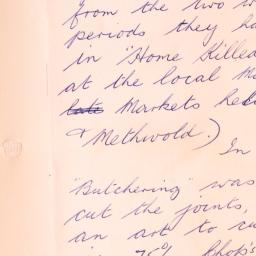 from the two
periods they ha
in "Home Killed
at the local M
late Markets hel
& Methwold.)
In
"Butchering" was
cut the joints,
an art to cu